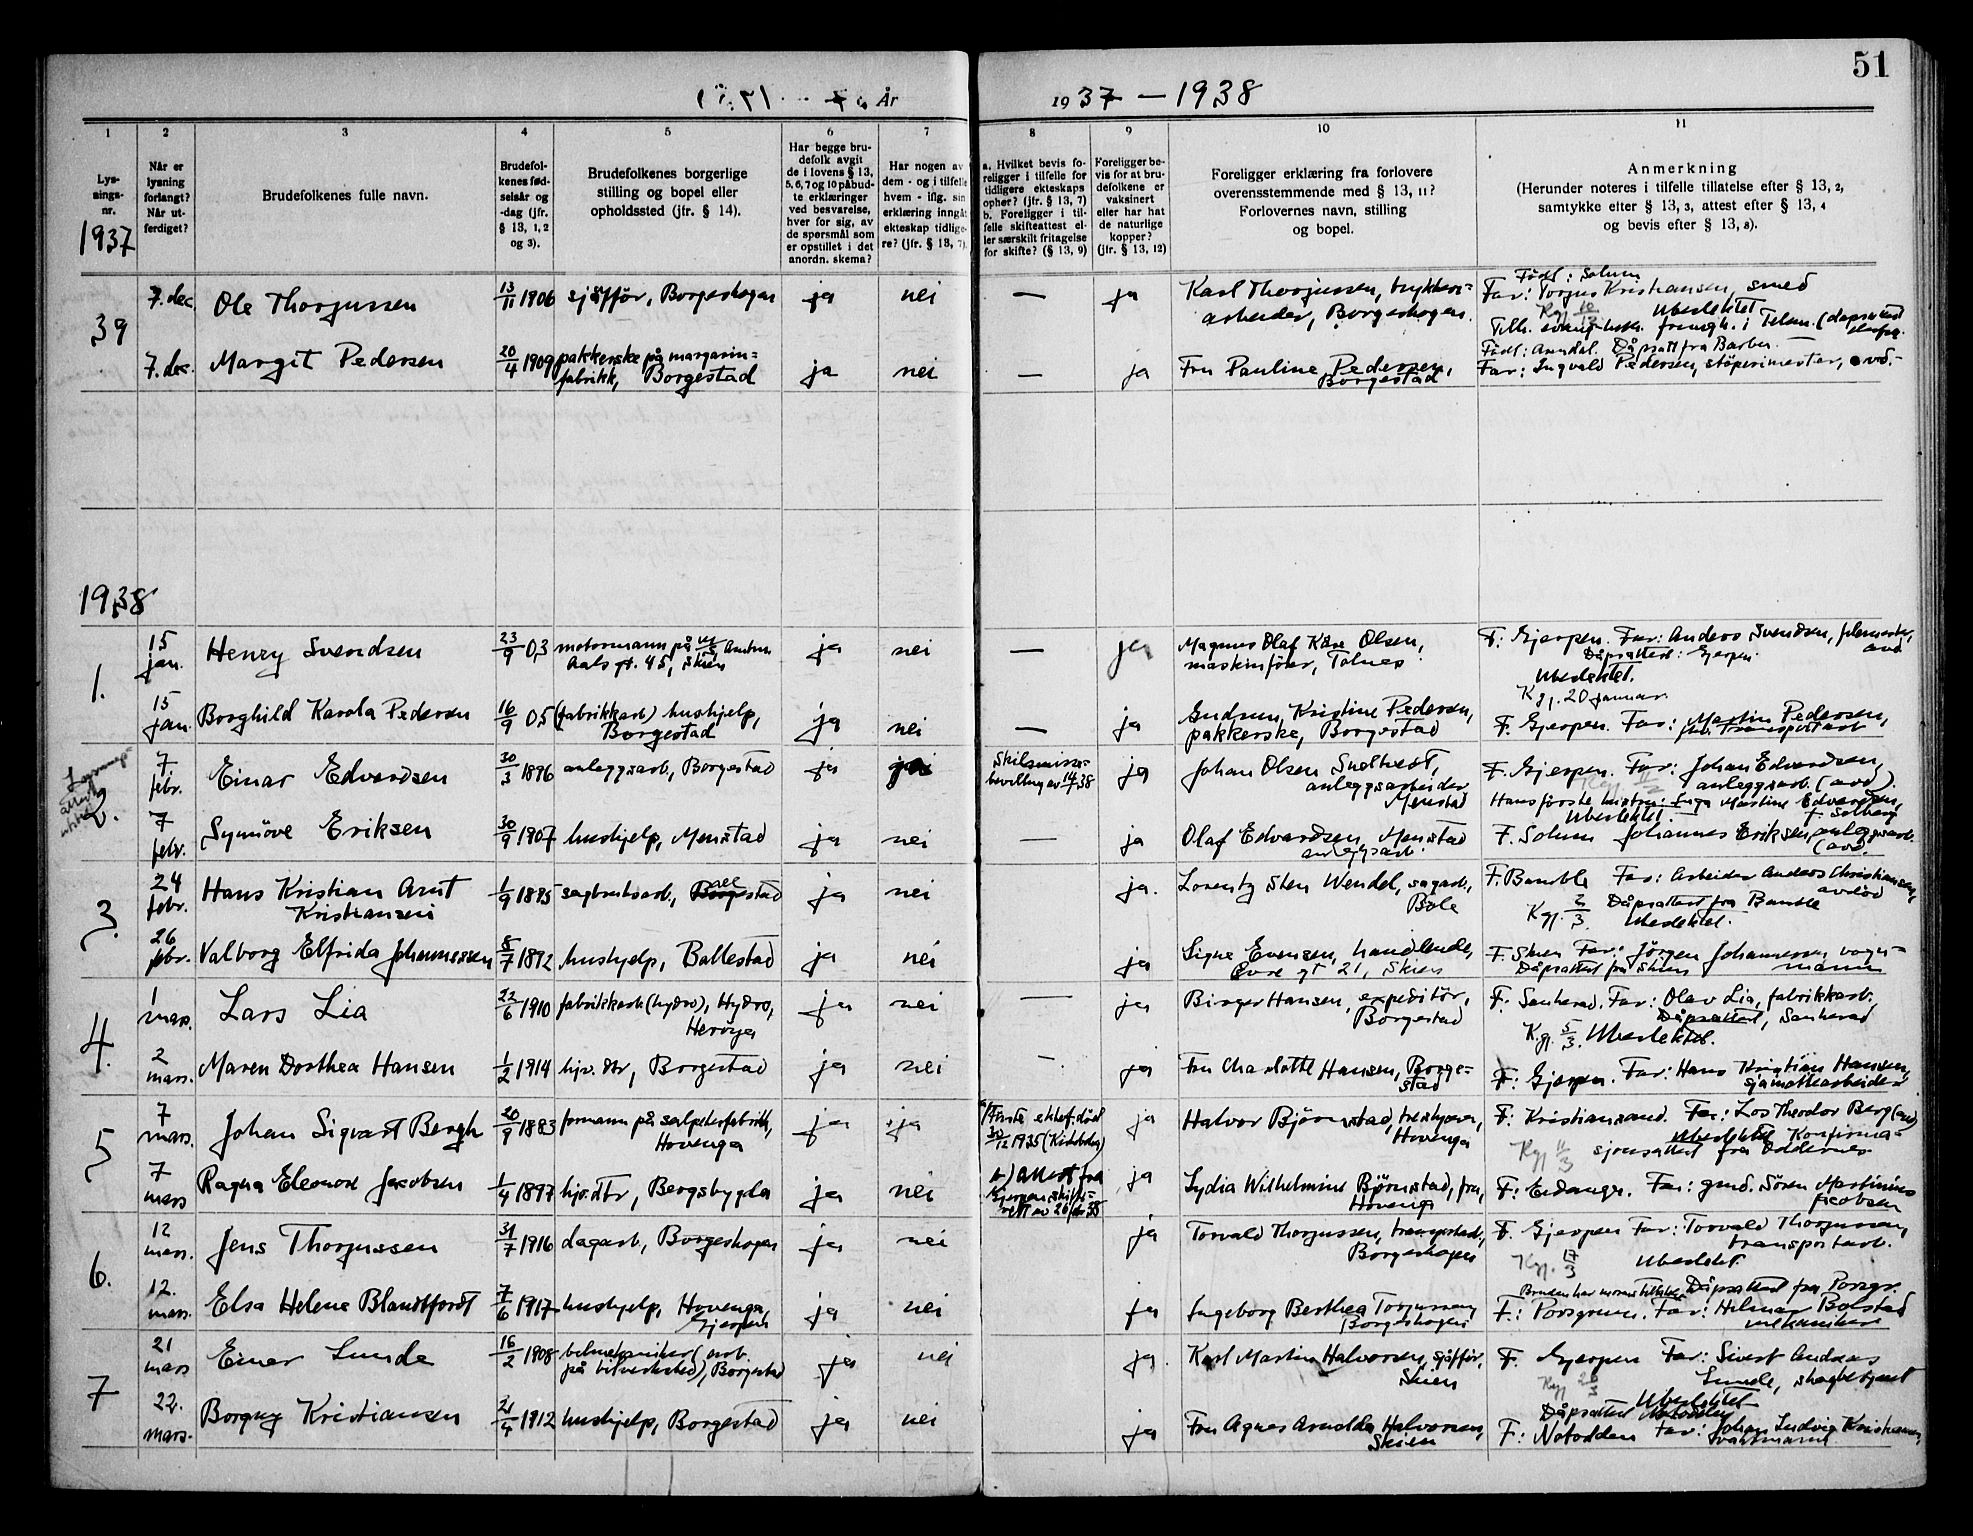 51
År
1937 — 1938
1
2
3
4
5
6
7
8
9
10
11
Lysningsnr.
Når er lysning forlangt? Når utferdiget?
Brudefolkenes fulle navn.
Brudefolkenes fødselsår og -dag (jfr. § 13, 1, 2 og 3).
Brudefolkenes borgerlige stilling og bopel eller opholdssted (jfr. § 14).
Har begge brudefolk avgit de i lovens § 13, 5, 6, 7 og 10 påbudte erklæringer ved besvarelse, hver for sig, av de spørsmål som er opstillet i det anordn. skema?
Har nogen av dem - og i tilfelle hvem - iflg. sin erklæring inngåt ekteskap tidligere? (jfr. § 13, 7).
a. Hvilket bevis foreligger i tilfelle for tidligere ekteskaps ophør? (jfr. § 13, 7) b. Foreligger i tilfelle skifteattest eller særskilt fritagelse for skifte? (§ 13, 9)
Foreligger bevis for at brudefolkene er vaksinert eller har hat de naturlige kopper? (jfr. § 13, 12)
Foreligger erklæring fra forlovere overensstemmende med § 13, 11? Forlovernes navn, stilling og bopel.
Anmerkning
(Herunder noteres i tilfelle tillatelse efter § 13, 2, samtykke efter § 13, 3, attest efter § 13, 4 og bevis efter § 13, 8).
1937
39
7. dec Ole Thorjussen 13/11 1906 sjåffør, Borgeskogen ja nei — ja Karl Thorjussen, trykkeriarbeider, Borgeskogen.
Født: Solum
Far: Torjus Kristiansen, smed
Kgj 10/12 Ubesluktet
7. dec. Margit Pedersen 20/4 1909 pakkerske på margarinfabrikk, Borgestad ja nei — ja Fru Pauline Pedersen, Borgestad
Født: Arendal. Dåpsatt fra Barbu.
Far: Ingvald Pedersen, støperimester, avd.
1938
1.
15 jan. Henry Svendsen 23/9 03 motormann på Aals gt. 45, Skien ja nei — ja Magnus Olaf Kåre Olsen, maskinfører, Tolnes
F: Gjerpen. Far: Anders Svendsen, avd
Dåpsattest: Gjerpen
Ubeslektet.
Kgj. 20 januar.
15 jan. Borghild Karola Pedersen 16/9 05 (fabrikkarb) hushjelp, Borgestad ja nei — ja Gudrun Kristine Pedersen, pakkerske, Borgestad
F. Gjerpen. Far: Martin Pedersen, transportarb
2.
7 febr. Einar Edvardsen 30/3 1896 anleggsarb., Borgestad ja ja Skilsmissebevilling av 14/1 38 ja Johan Olsen anleggsarbeider Menstad
F. Gjerpen. Far: Johan Edvardsen, anleggsarb. (avd.)
Hans første hustru: Inga Martine Edvardsen, f. Solberg
Ubeslektet.
7 febr. Synnöve Eriksen 30/9 1907 hushjelp, Menstad ja nei — ja Olaf Edvardsen, Menstad anleggsarb.
F. Solum Johannes Eriksen, anleggsarb. (avd.
3.
24 febr. Hans Kristian Arnt Kristiansen 1/9 1885 sagbruksarb., Ballestad ja nei ja. Lorentz Sten Wendel, sagarb., Bøle
F. Bamble Far: Arbeider Anders Christiansen, avdød
Kgj. 2/3 Dåpsattest fra Bamble
Ubeslektet.
26 febr. Valborg Elfrida Johannessen 8/7 1892 hushjelp, Ballestad ja nei ja Signe Evensen, handlende, Øvre gt 21, Skien
F. Skien Far: Jörgen Johannessen vognmann
Dåpsattest fra Skien
4.
1 mars. Lars Lia 22/6 1910 fabrikkarb (hydro), Hydro, Herøya ja nei — ja Birger Hansen, expeditör, Borgestad
F. Sauherad. Far: Olav Lia, fabrikkarb.,
Dåpsattest, Sauherad
Kgj. 5/3. Ubeslektet.
2 mars. Maren Dorthea Hansen 1/2 1914 hjv. dtr, Borgestad ja nei - ja Fru Charlotte Hansen, Borgestad
F: Gjerpen. Far: Hans Kristian Hansen, sjamottearbeider
5
7 mars. Johan Sigvart Bergh 20/9 1883 formann på salpeterfabrikk, Hovenga ja ja ja Halvor Björnstad, Hovenga
Første ektef. död 1935
F: Kristiansand. Far: Los Theodor Berg (avd)
Ubeslektet Konfirmasjonsattest fra Oddernes
Kgj 11/3
7 mars Ragna Eleonore Jacobsen 1/4 1897 hjv. dtr, Bergsbygda ja nei b) Attest fra Gjerpen skifterett av 26/ 38 ja Lydia Wilhelmine Bjørnstad, fru, Hovenga
F: Eidanger. Far: gmd. Sören Martinius Jacobsen
6.
12 mars. Jens Thorjussen 31/7 1916 dagarb., Borgeskogen ja nei ja Torvald Thorjussen, transportarb., Borgeskogen
F. Gjerpen Far: Torvald Thorjussen, transportarb.
Kgj. 17/3 Ubeslektet.
12. mars. Elsa Helene Blandtfordt 7/6 1917 hushjelp, Hovenga, Gjerpen ja nei ja Ingeborg Berthea Torjussen, Borgeskogen
Dåpsattest fra Porsgr.
F.: Porsgrunn. Far: Hilmar Bolstad mekaniker
7
21 mars Einar Lunde 16/2 1908 bilmekaniker (arb på bilverksted), Borgestad ja nei ja. Karl Martin Halvorsen, sjåffør, Skien
F. Gjerpen Far: Sivert Andreas Lunde, skogbetjent
Ubeslektet
22. mars. Borgny Kristiansen 21/4 1912 hushjelp, Borgestad ja nei ja Fru Agnes Arnolda Halvorsen, Skien
Dåpsattest Notodden
F: Notodden Far: Johan Ludvig Kristiansen, vaktmann